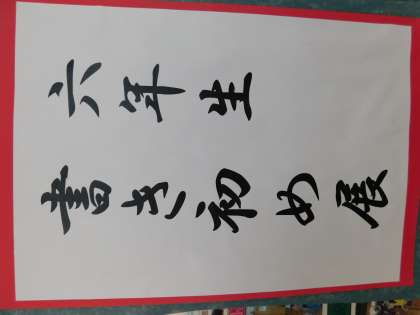 六年生
書き初め展